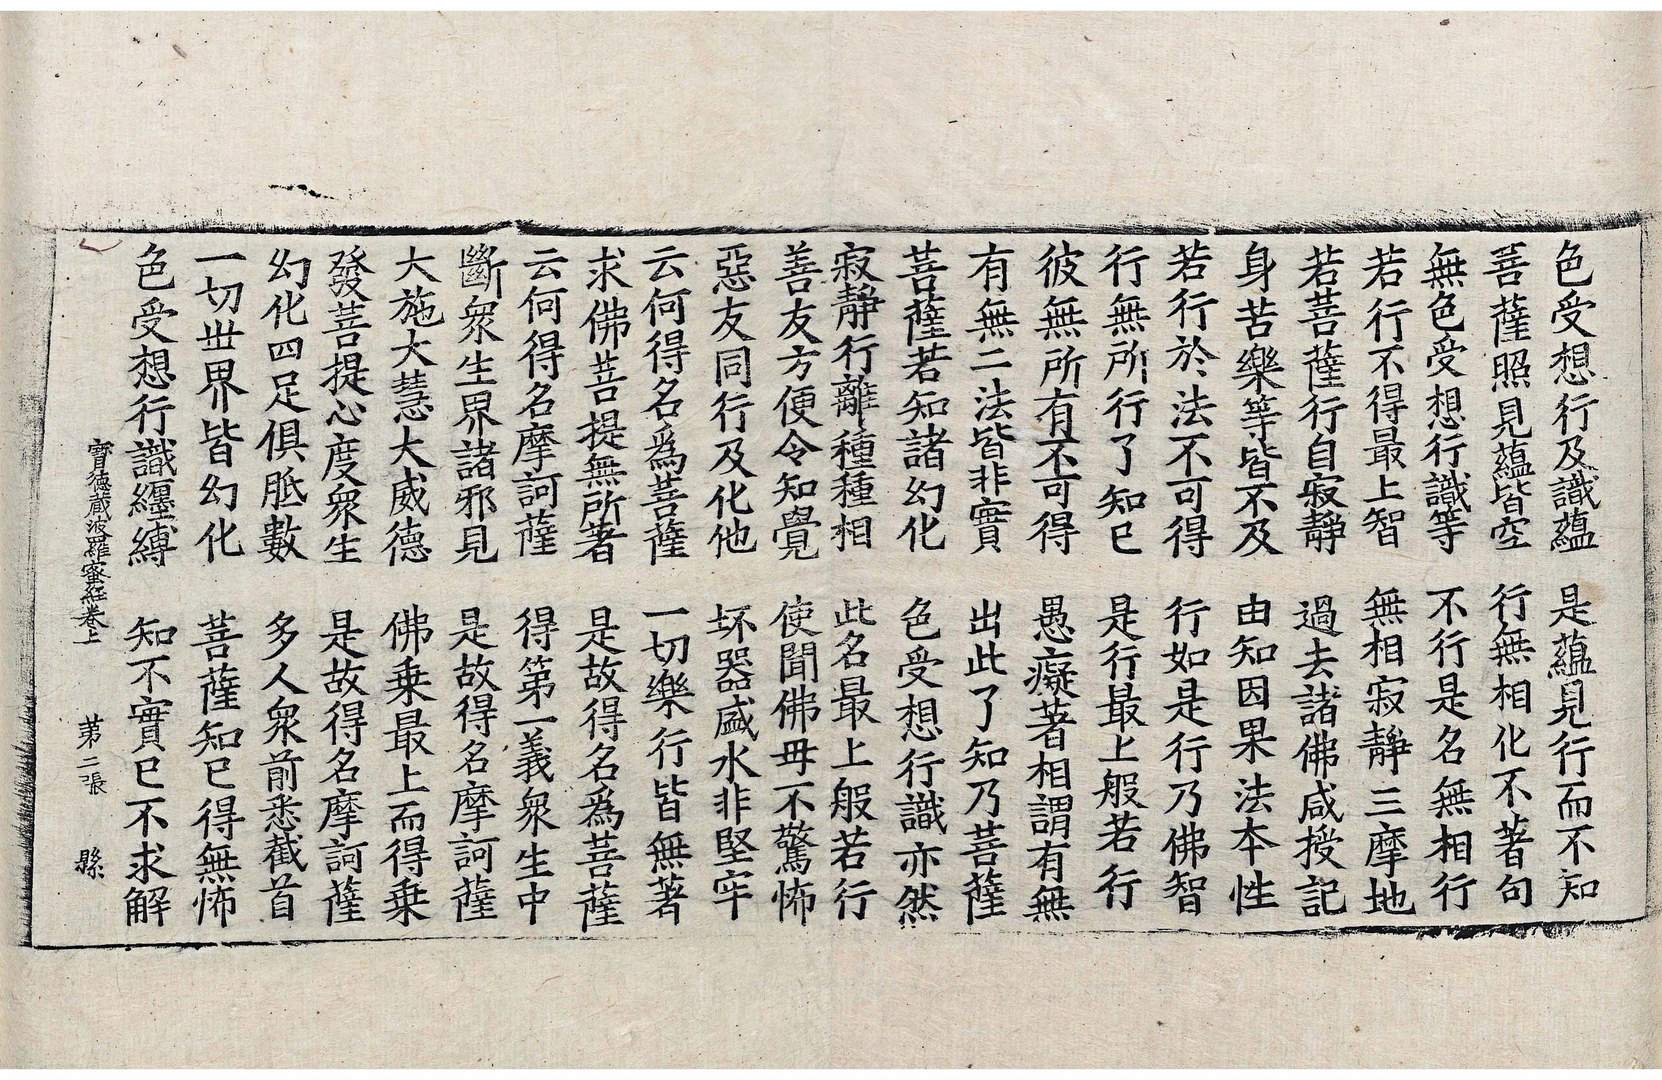 色受想行及識蘊　是蘊見行而不知
菩薩照見蘊皆空　行無相化不著句
無色受想行識等　不行是名無相行
若行不得最上智　無相寂靜三摩地
若菩薩行自寂靜　過去諸佛咸授記
身苦樂等皆不及　由知因果法本性
若行於法不可得　行如是行乃佛智
行無所行了知已　是行最上般若行
彼無所有不可得　愚癡著相謂有無
有無二法皆非實　出此了知乃菩薩
菩薩若知諸幻化　色受想行識亦然
寂靜行離種種相　此名最上般若行
善友方便令知覺　使聞佛母不驚怖
惡友同行及化他　坏器盛水非堅牢
云何得名爲菩薩　一切樂行皆無著
求佛菩提無所著　是故得名爲菩薩
云何得名摩訶薩　得第一義衆生中
斷衆生界諸邪見　是故得名摩訶薩
大施大慧大威德　佛乗最上而得乗
發菩提心度衆生　是故得名摩訶薩
幻化四足俱胝數　多人衆前悉截首
一切世界皆幻化　菩薩知已得無怖
色受想行識纒縛　知不實已不求解
寶德藏波羅蜜經卷上　第二張　縣